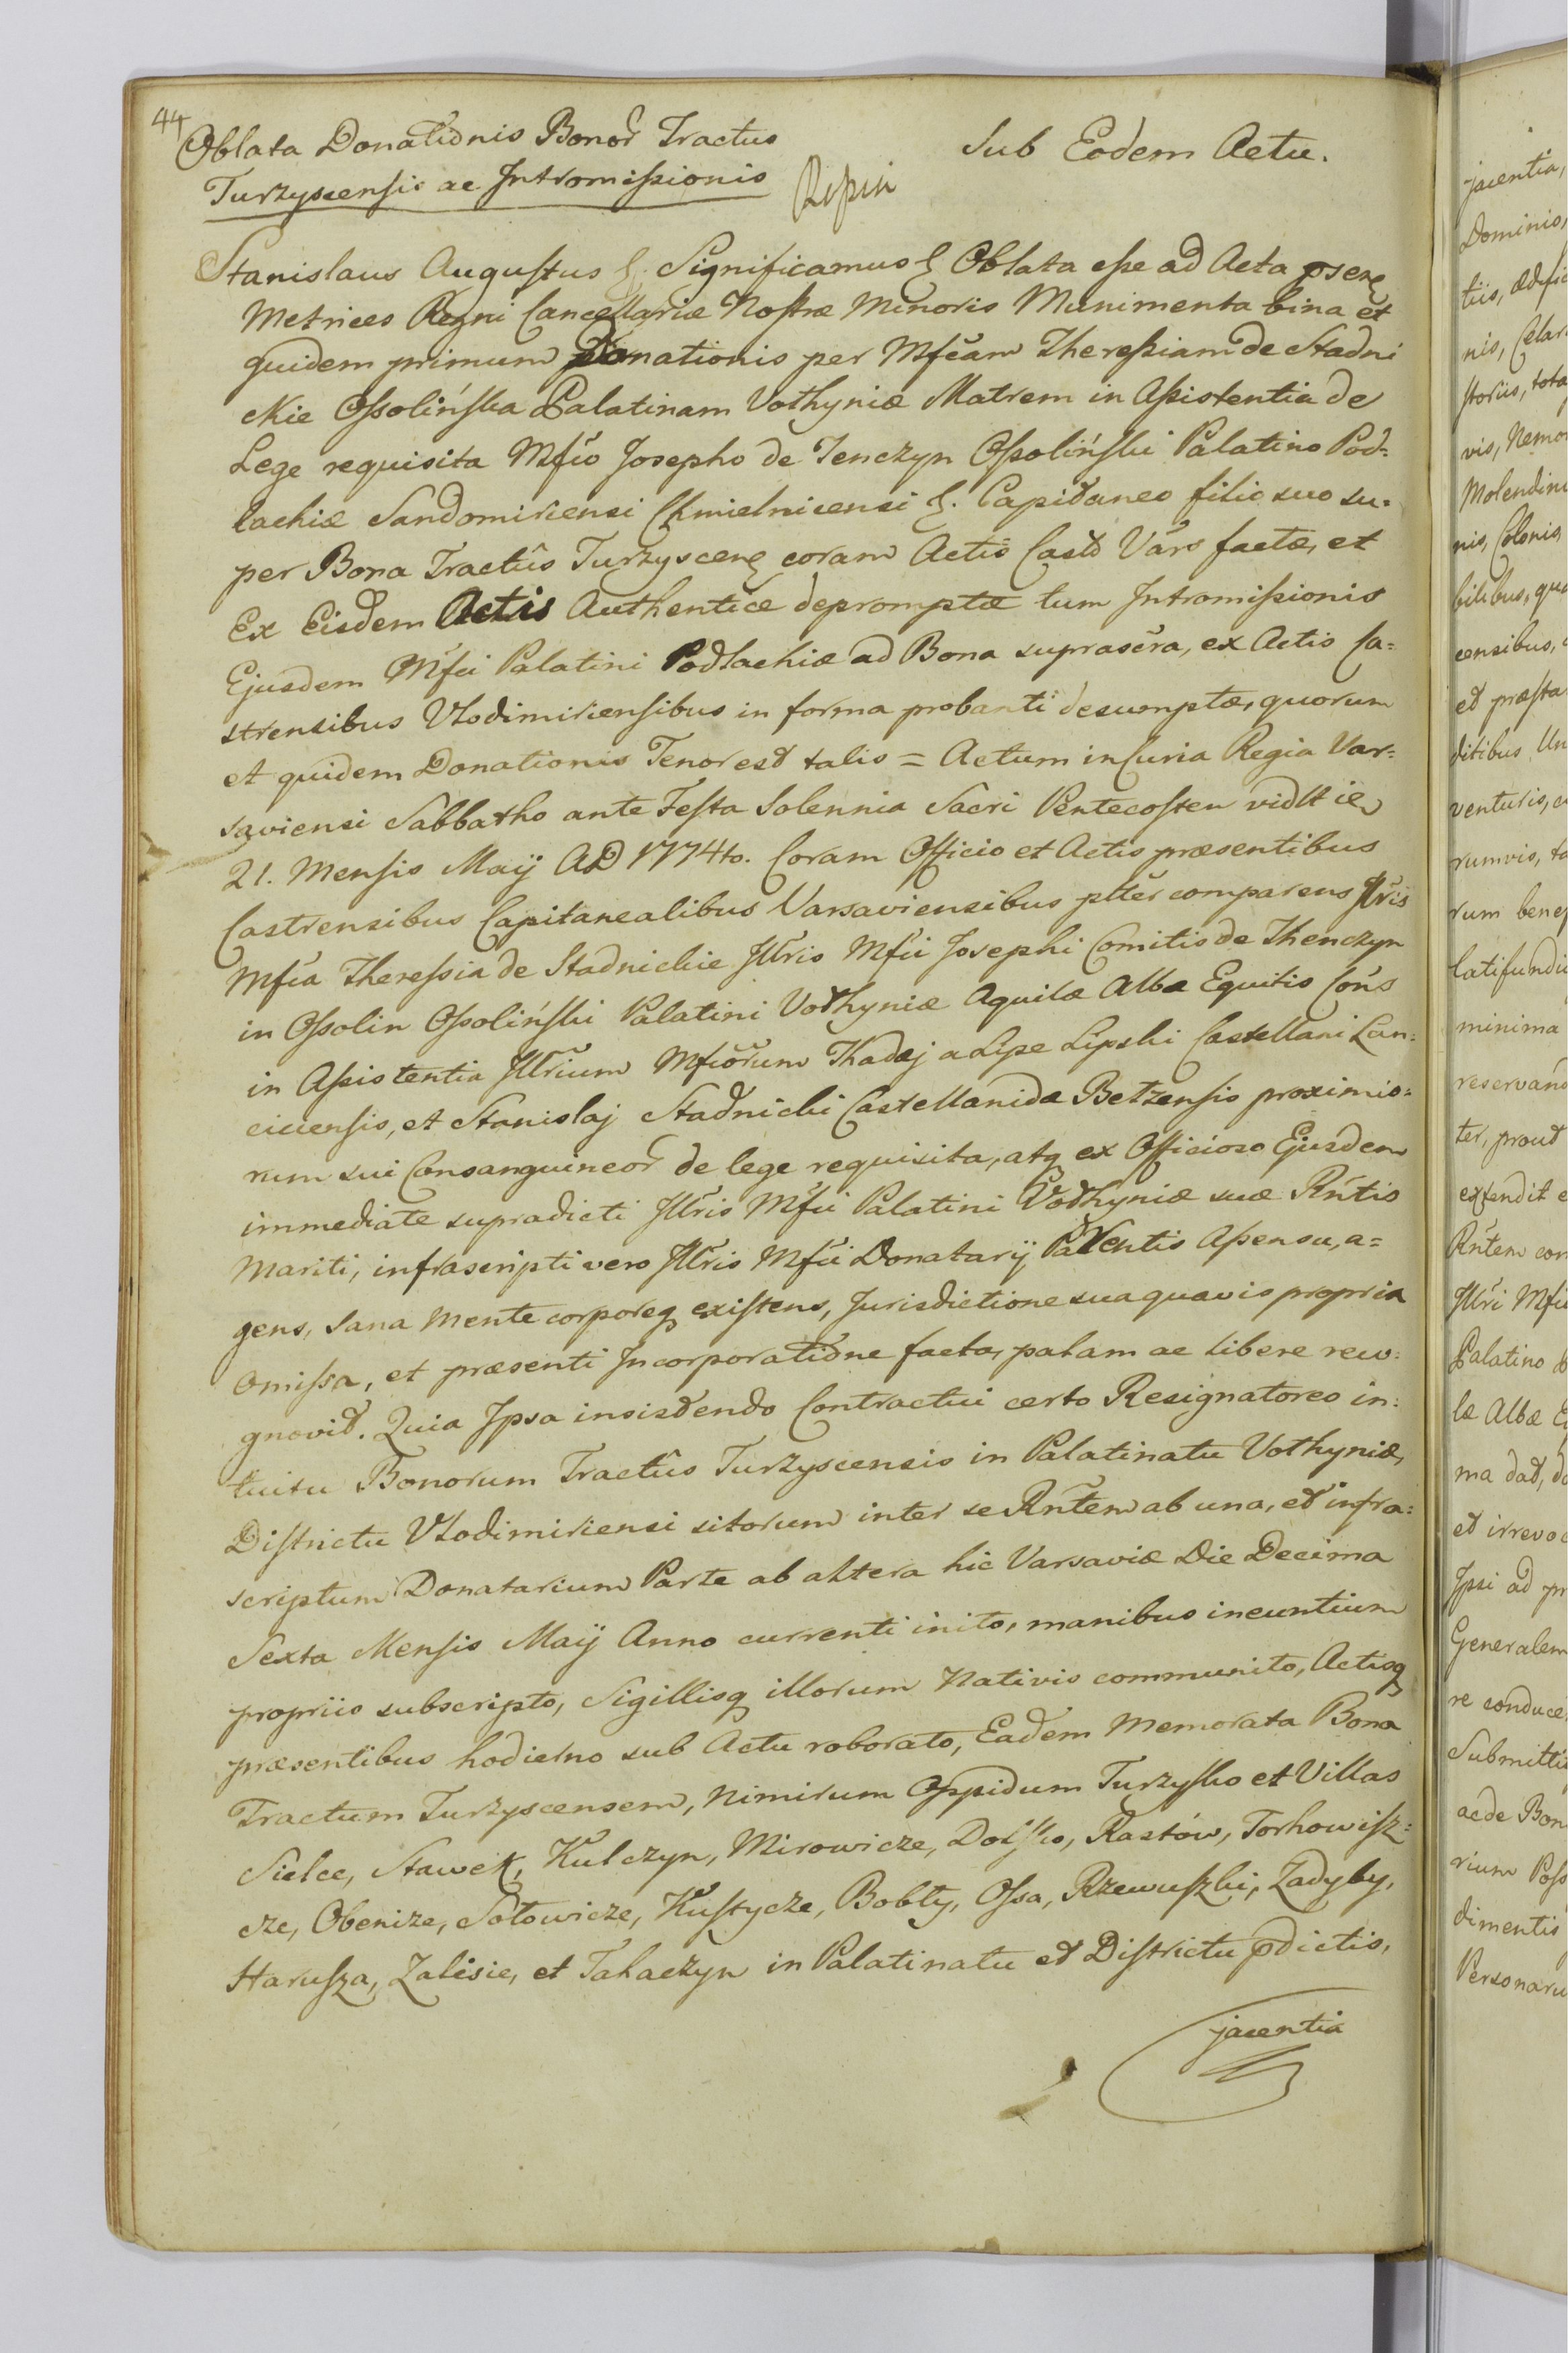 44
Oblata Donationis Bonor Tractus
Turzyscensis ac Intromissionis
Sub Eodem Actu.
Stanislaus Augustus &. Significamus & Oblata esse ad Acta psen
Metrices Regni Cancellariæ Nostræ Minoris Munimenta bina et
quidem primum Donationis per Mfcam Theressiam de Stadni
ckie Ossolińska Palatinam Vołhyniæ Matrem in Assistentia de
Lege requisita Mfco Josepho de Tenczyn Ossoliński Palatino Pod=
lachiæ Sandomiriensi Chmielnicensi &. Capitaneo filio suo su=
per Bona Tractûs Turzyscen coram Actis Castr Vars factæ, et
Ex Eisdem Actis Authentice depromptæ tum Intromissionis
Ejusdem Mfci Palatini Podlachiæ ad Bona suprascra, ex Actis Ca=
strensibus Vlodimiriensibus in forma probanti desumptæ, quorum
et quidem Donationis Tenor est talis = Actum in Curia Regia Var=
saviensi Sabbatho ante Festa Solennia Sacri Pentecosten vidlt ie
21. Mensis Maÿ AD 1774to. Coram Officio et Actis præsentibus
Castrensibus Capitanealibus Varsaviensibus pltter comparens Illris
Mfca Theressia de Stadnickie Jllris Mfci Josephi Comitis de Thenczyn
in Ossolin Ossoliński Palatini Vołhyniæ Aquilæ Albæ Equitis Cons
in Assistentia Jllrium Mfcorum Thadæj a Lipe Lipski Castellani Lan=
ciciensis, et Stanislaj Stadnicki Castellanidæ Betzensis proximio=
rum sui Consanguineor de lege requisita, atq ex Officioso Ejusdem
immediate supradicti Jllris Mfci Palatini Vołhyniæ suæ Rntis
Mariti, infrascripti vero Jllris Mfci Donatarÿ Parentis Assensu, a=
gens, Sana Mente corporeq existens, Jurisdictione sua quavis propria
Omissa, et præsenti Incorporatione facta, palam ac libere reco=
gnovit. Quia Ipsa insistendo Contractui certo Resignatoreo in=
tuitu Bonorum Tractûs Turzyscensis in Palatinatu Vołhyniæ,
Districtu Vlodimiriensi sitorum inter se Rntem ab una, et infra=
scriptum Donatarium Parte ab altera hic Varsaviæ Die Decima
Sexta Mensis Maÿ Anno currenti inito, manibus ineuntium
propriis subscripto, Sigillisq illorum Nativis communito, Actisq
præsentibus hodierno sub Actu roborato, Eadem Memorata Bona
Tractum Turzyscensem, nimirum Oppidum Turzysko et Villas
Sielce, Stawek, Kulczyn, Mirowicze, Dolsko, Rastów, Torhowisz=
cze, Obenize, Sołowicze, Kustycze, Bobły, Ossa, Rzewuszki, Zadyby,
Harusza, Zalesie, et Tahaczyn in Palatinatu et Districtu pdictis,
jacentia
jacentia,
Dominis,
nis,
vis,
Molendini
nis, Colonis
bilibus,
censibus,
ditibus
venturis,
rumvis,
rum
latifundi
minima
ter, prout
extendit
Rntem
Jllri Mfc
Palatino
læ Albæ
ma dat,
et irrevoc
Ipsi ad
Generalem
re conduce
Submitti
ac de Bon
rium Poss
dimentis
Personaru